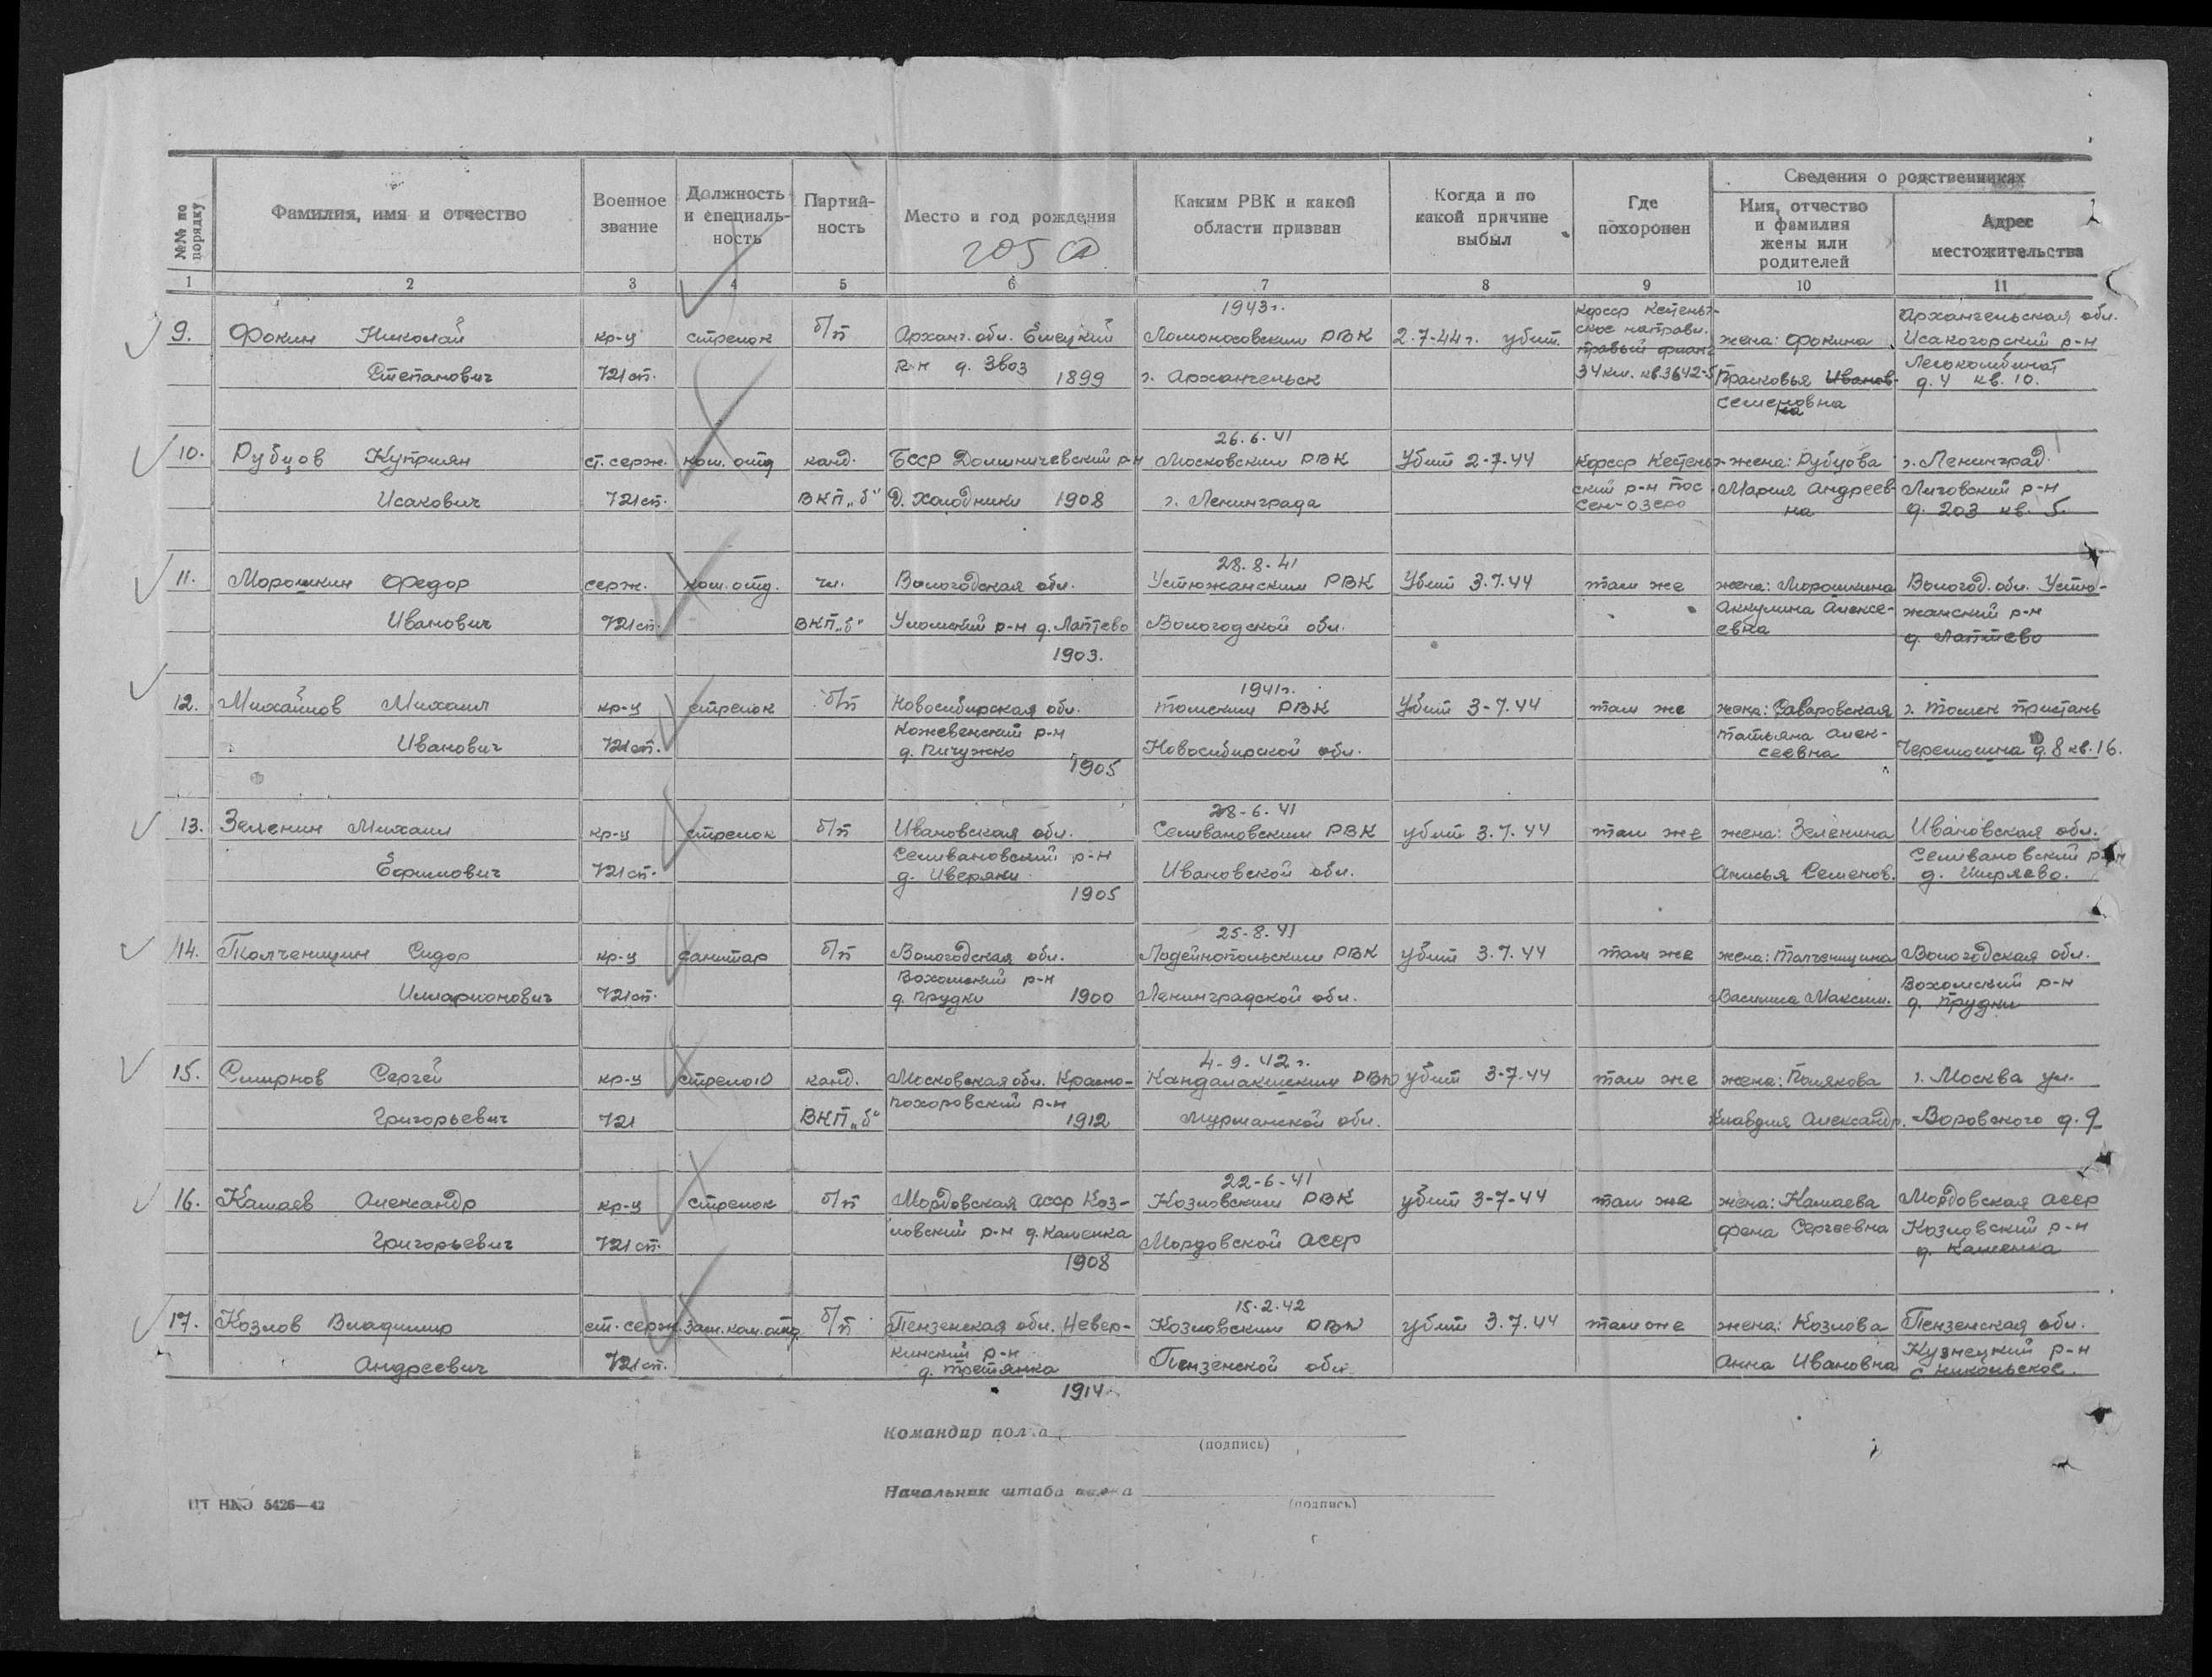 №№ по порядку
Фамилия, имя и отчество
Военное звание
Должность и специаль-ность
Партий-ность
Место и год рождения
205
Каким РВК и какой области призван
Когда и по какой причине выбыл
Где похоронен
Сведения о родственниках
Имя, отчество и фамилия жены или родителей
Адрес местожительства
1 2 3 4 5 6 7 8 9 10 11
1943г. Карсср Кестеньг- Архангельская обл.
9. Фокин Николай кр-ц стрелок б/п Арханг. обл. Емецкий Ломоносовским РВК 2.7-44г. убит. ское направл. правый фланг жена: Фокина Исакогорский р-н
Степанович 721 сп. р-н д. Звоз 1899 г. Архангельск 34 км. кв. 3642-5 Прасковья Иванов- Лесокомбинат д. 4 кв. 10.
Семеновна на
26.6.41
10. Рубцов Куприян ст. серж. ком. отд канд. БССР Домничевский р-н Московским РВК Убит 2-7-44 Карсср Кестеньг- жена: Рубцова г. Ленинград
Исакович 721 сп. ВКП „б" Д. Холодники 1908 г. Ленинграда ский р-н пос Сен-озеро Мария Андреев-на Лиговский р-н д. 203 кв. 5.
28.8.41
11. Морошкин Федор серж. ком. отд. чл. Вологодская обл. Устюжанским РВК Убит 3.7.44 там же жена: Морошкина Вологод. обл. Устю-
Иванович 721 сп. ВКП „б" Уломский р-н д. Лаптево Вологодской обл. Аккулина Алексе-евна жанский р-н д. Лаптево
1903.
1941г.
12. Михайлов Михаил кр-ц стрелок б/п Новосибирская обл. Томским РВК Убит 3-7.44 там же жена: Заваровская г. Томск пристань
Иванович 721 сп. Кожевенский р-н д. Пичужко Новосибирской обл. Татьяна Алек-сеевна Черемошина д. 8 кв. 16.
1905
28-6.41
13. Зеленин Михаил кр-ц стрелок б/п Ивановская обл. Селивановским РВК убит 3.7.44 там же жена: Зеленина Ивановская обл.
Ефимович 721 сп. Селивановский р-н д. Иверяки Ивановской обл. Анисья Семенов. Селивановский р-н д. Ширяево.
1905
25-8.41
14. Толченицин Сидор кр-ц санитар б/п Вологодская обл. Лодейнопольским РВК убит 3.7.44 там же жена: Толченицина Вологодская обл.
Илларионович 721 сп. Вохомский р-н д. Прудки 1900 Ленинградской обл. Василиса Максим. Вохомский р-н д. Прудки
4-9.42г.
15. Смирнов Сергей кр-ц стрелок канд. Московская обл. Красно- Кандалакшским РВК убит 3-7.44 там же жена: Полякова г. Москва ул.
Григорьевич 721 ВКП „б" похоровский р-н 1912 Мурманской обл. Клавдия Александр. Воровского д. 9
22-6-41
16. Камаев Александр кр-ц стрелок б/п Мордовская АССР Коз- Козловским РВК убит 3-7-44 там же жена: Камаева Мордовская АССР
Григорьевич 721 сп. ловский р-н д. Каменка Мордовской АССР Фена Сергеевна Козловский р-н д. Каменка
1908
15.2.42
17. Козлов Владимир ст. серж. Зам. ком. отд. б/п Пензенская обл. Невер- Козловским РВК убит 3.7.44 там же жена: Козлова Пензенская обл.
Андреевич 721 сп. кинский р-н д. Третянка Пензенской обл. Анна Ивановна Кузнецкий р-н с Никольское.
1914
Командир полка
(подпись)
Начальник штаба полка
(подпись)
ЦТ НКО 5426—42